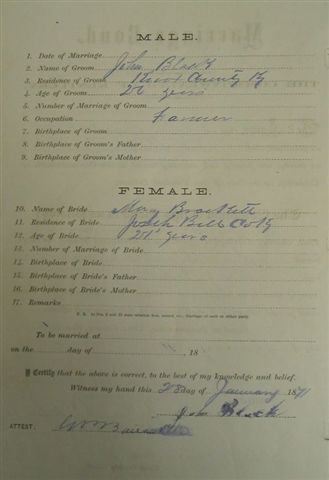 MALE.
1. Date of Marriage
2. Name of Groom John Black
3. Residence of Groom Knox County Ky
4. Age of Groom 26 years
5. Number of Marriage of Groom
6. Occupation Farmer
7. Birthplace of Groom
8. Birthplace of Groom's Father
9. Birthplace of Groom's Mother
FEMALE.
10. Name of Bride Mary
11. Residence of Bride Josh Bell Co Ky
12. Age of Bride 21 years
13. Number of Marriage of Bride
14. Birthplace of Bride
15. Birthplace of Bride's Father
16. Birthplace of Bride's Mother
17. Remarks
To be married at
on the day of , 18
I Certify that the above is correct, to the best of my knowledge and belief.
Witness my hand this 28 day of January 1871
John Black
ATTEST: